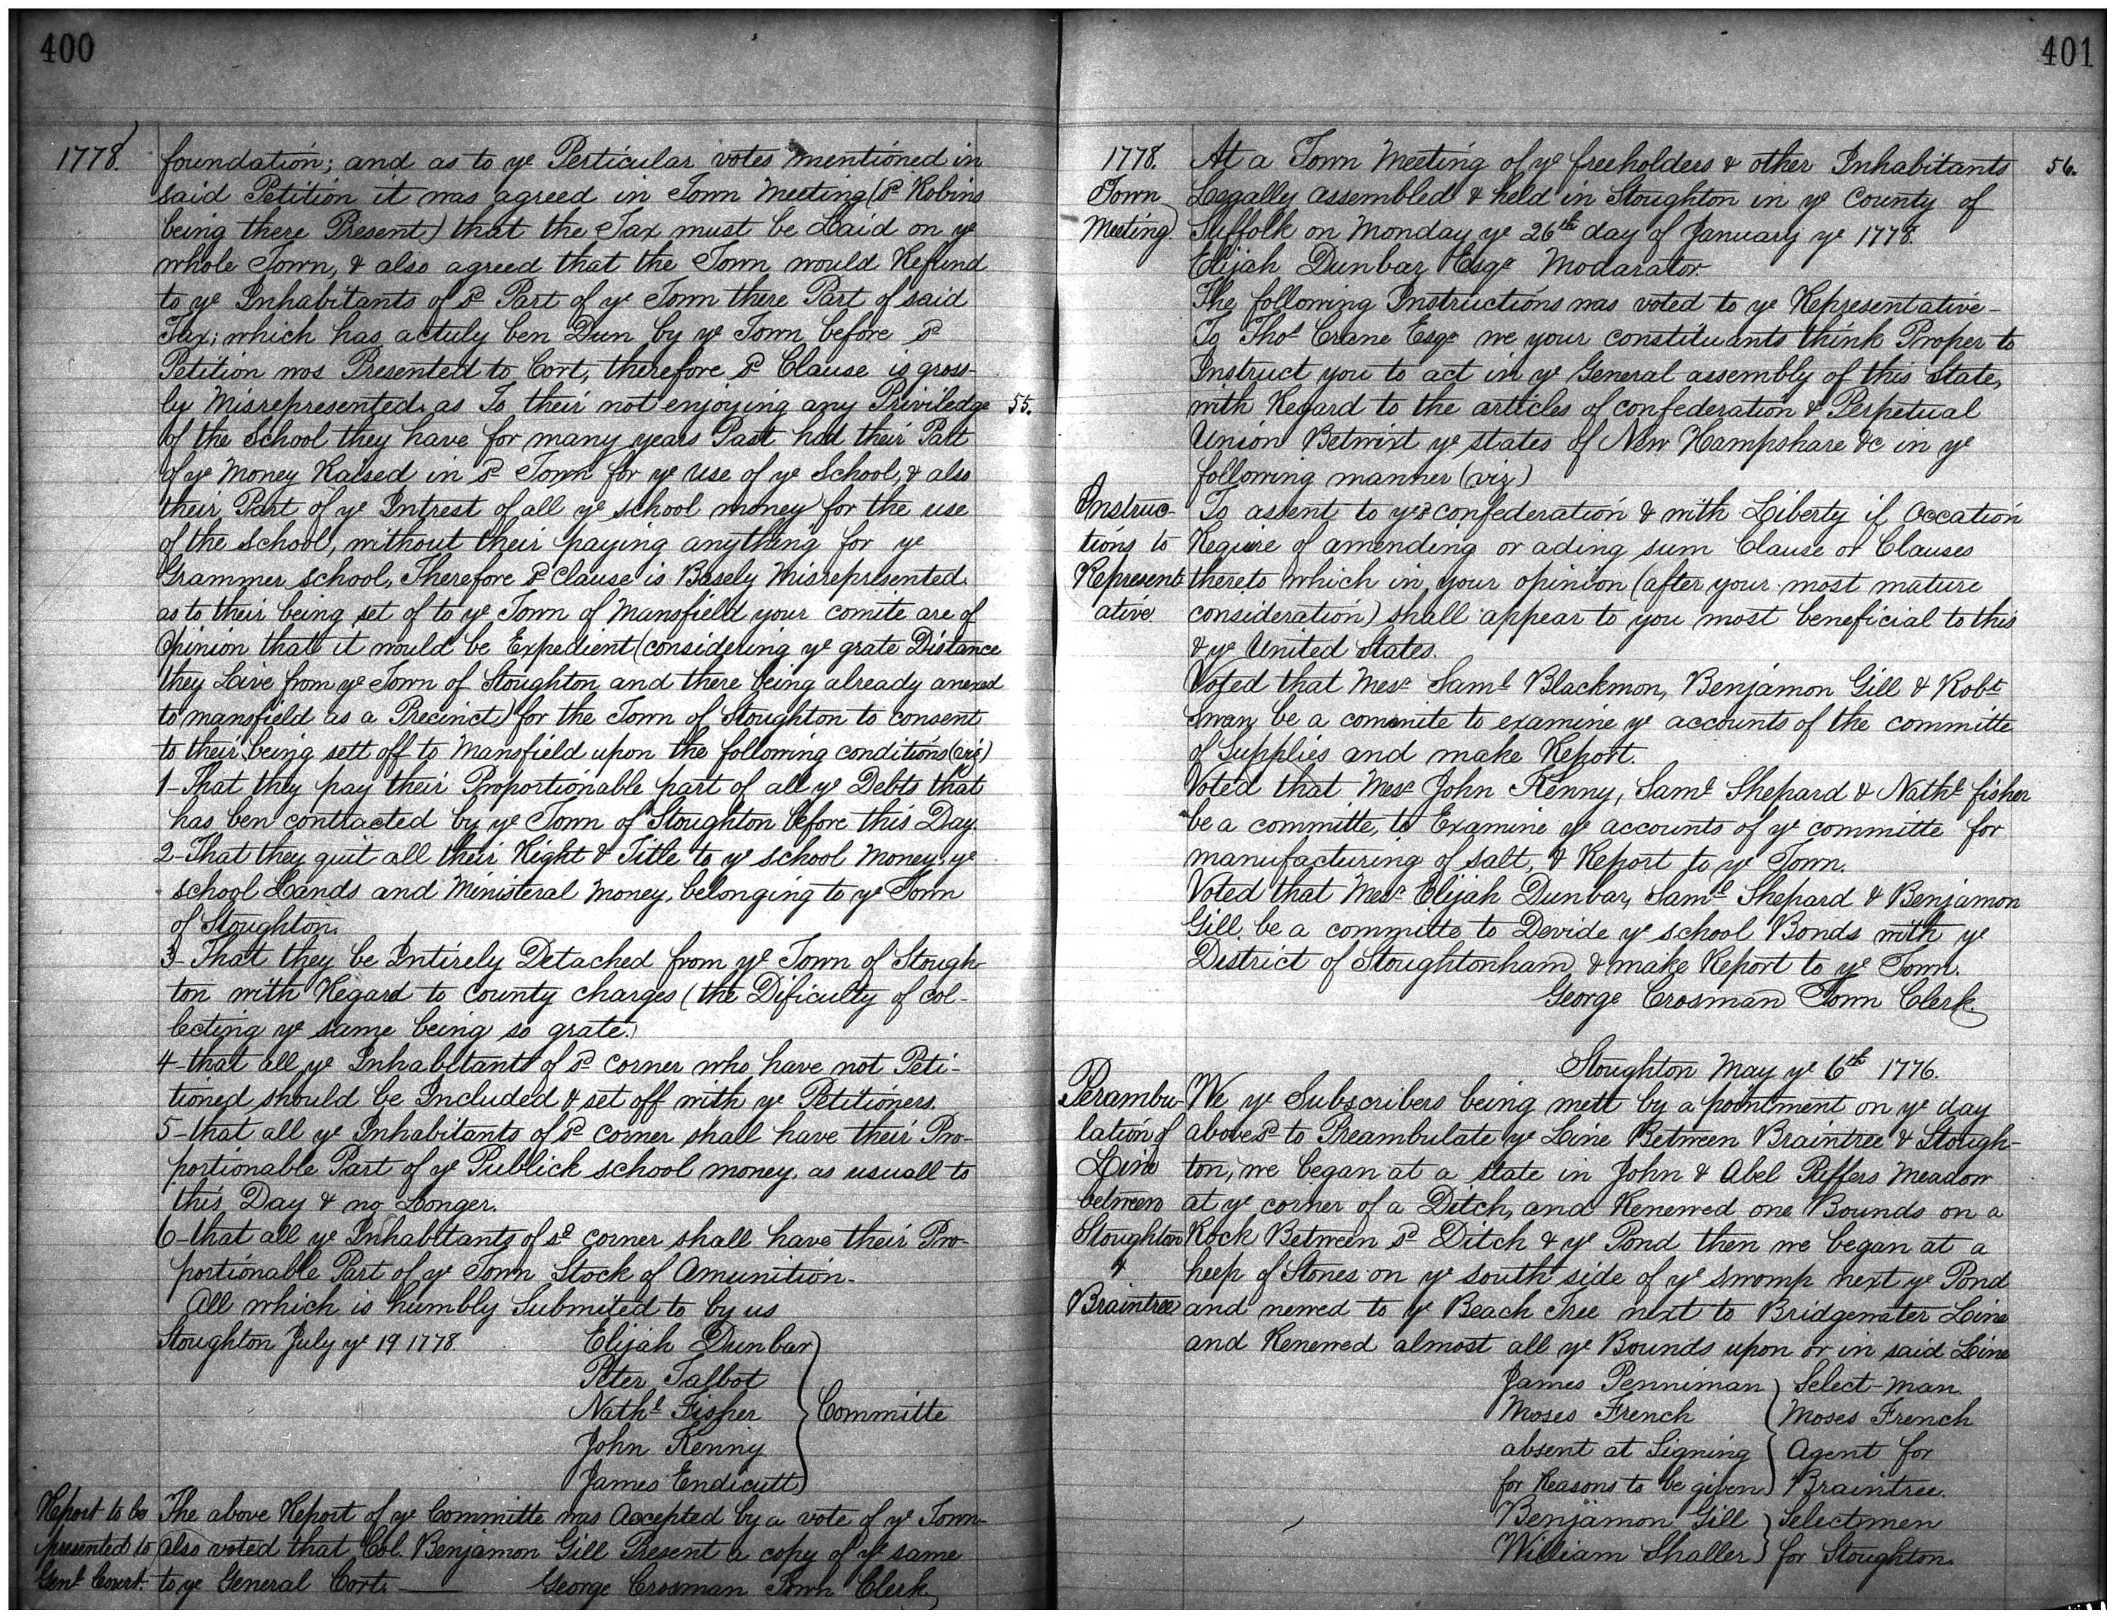 400
1778. foundation; and as to ye Perticular votes mentioned in
said Petition it was agreed in Town Meeting (sd Robins
being there Present) that the Tax must be Laid on ye
whole Town, & also agreed that the Town would Refund
to ye Inhabitants of sd Part of ye Town there Part of said
Tax; which has actuly ben Dun by ye Town before sd
Petition wos Presented to Cort, therefore sd Clause is gross-
ly Misrepresented. as To their not enjoying any Priviledge 55.
of the School they have for many years Past had their Part
of ye Money Raised in sd Town for ye use of ye School, & also
their Part of ye Intrest of all ye school money for the use
of the School, without their paying anything for ye
Grammer school, Therefore sd clause is Basely Misrepresented.
as to their being set of to ye Town of Mansfield your comite are of
Opinion that it would be Expedient (considering ye grate Distance
they Live from ye Town of Stoughton and there being already anexed
to mansfield as a Precinct) for the Town of Stoughton to consent
to their being sett off to Mansfield upon the following conditions (viz)
1- That they pay their Proportionable part of all ye Debts that
has ben contracted by ye Town of Stoughton before this Day.
2- That they quit all their Right & Title to ye school Money, ye
school Lands and Ministeral money, belonging to ye Town
of Stoughton.
3- That they be Intirely Detached from ye Town of Stough-
ton with Regard to County charges (the Dificulty of col-
lecting ye same being so grate.)
4- that all ye Inhabitants of sd corner who have not Peti-
tioned should be Included & set off with ye Petitioners.
5- that all ye Inhabitants of sd corner shall have their Pro-
portionable Part of ye Publick school money, as usuall to
this Day & no Longer.
6- that all ye Inhabitants of sd corner shall have their Pro-
portionable Part of ye Town Stock of Amunition.
All which is humbly Submited to by us
Stoughton July ye 19 1778. Elijah Dunbar
Peter Talbot
Nathl Fisher } Committe
John Kenny
James Endicutt
Report to be The above Report of ye Committe was Accepted by a vote of ye Town
presented to also voted that Col. Benjamon Gill Present a copy of ye same
Genl Court. to ye General Cort. — George Crosman Town Clerk
401
1778. At a Town Meeting of ye freeholders & other Inhabitants 56.
Town Legally assembled & held in Stoughton in ye County of
Meeting Suffolk on Monday ye 26th day of January ye 1778.
Elijah Dunbar Esqr Modarator
The following Instructions was voted to ye Representative-
To Thos Crane Esqr we your constituants think Proper to
Instruct you to act in ye General assembly of this State,
with Regard to the articles of confederation & Perpetual
Union Betwixt ye states of New Hampshare &c in ye
following manner (viz)
Instruc- To assent to yes confederation & with Liberty if Occation
tions to Require of amending or ading sum Clause or Clauses
Represent- thereto which in your opinion (after your most mature
ative. consideration) shall appear to you most beneficial to this
& ye United States.
Voted that Mesr Saml Blackmon, Benjamon Gill & Robt
Swan be a commite to examine ye accounts of the committe
of Supplies and make Report.
Voted that Mesr John Kenny, Saml Shepard & Nathl fisher
be a committe, to Examine ye accounts of ye committe for
manufacturing of salt, & Report to ye Town.
Voted that Mesr Elijah Dunbar, Saml Shepard & Benjamon
Gill be a committe to Devide ye school Bonds with ye
District of Stoughtonham & make Report to ye Town.
George Crosman Town Clerk.
Stoughton May ye 6th 1776.
Perambu- We ye Subscribers being mett by a pointment on ye day
lation of abovesd to Preambulate ye Line Between Braintree & Stough-
Line ton; we began at a state in John & Abel Puffers Meadow
between at ye corner of a Ditch, and Renewed one Bounds on a
Stoughton Rock Between sd Ditch & ye Pond then we began at a
& heep of Stones on ye south side of ye swomp next ye Pond
Braintree and newed to ye Beach Tree next to Bridgewater Line
and Renewed almost all ye Bounds upon or in said Line
James Penniman } Select-man.
Moses French } Moses French
absent at Signing } Agent for
for Reasons to be given } Braintree.
Benjamon Gill } Selectmen
William Shaller } for Stoughton.